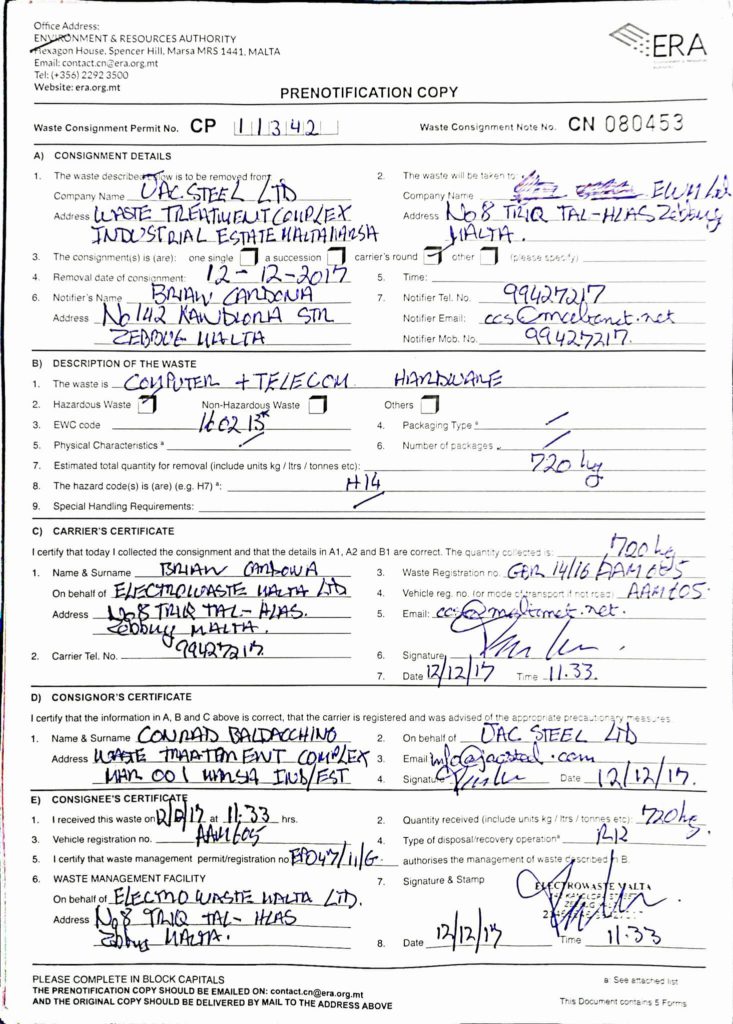 Office Address:
ENVIRONMENT & RESOURCES AUTHORITY
Hexagon House, Spencer Hill, Marsa MRS 1441, MALTA
Email: contact.cn@era.org.mt
Tel: (+356) 2292 3500
Website: era.org.mt
ERA
PRENOTIFICATION COPY
Waste Consignment Permit No. CP 11342
Waste Consignment Note No. CN 080453
A) CONSIGNMENT DETAILS
1. The waste described below is to be removed from
Company Name JAC STEEL LTD
Address WASTE TREATMENT COMPLEX
INDUSTRIAL ESTATE MALTA MARSA
2. The waste will be taken to
Company Name EWM Ltd
Address No 8 TRIQ TAL-HLAS Zebbug
MALTA.
3. The consignment(s) is (are): one single a succession carrier's round other (please specify)
4. Removal date of consignment: 12-12-2017
5. Time:
6. Notifier's Name BRIAN CARDONA
Address No 142 KANDLORA STR
ZEBBUG MALTA
7. Notifier Tel. No. 99427217
Notifier Email: ccs@maltanet.net
Notifier Mob. No. 99427217.
B) DESCRIPTION OF THE WASTE
1. The waste is COMPUTER + TELECOM HARDWARE
2. Hazardous Waste Non-Hazardous Waste Others
3. EWC code 16 02 13*
4. Packaging Type a
5. Physical Characteristics a
6. Number of packages
7. Estimated total quantity for removal (include units kg / ltrs / tonnes etc): 720 kg
8. The hazard code(s) is (are) (e.g. H7) a: H14
9. Special Handling Requirements:
C) CARRIER'S CERTIFICATE
I certify that today I collected the consignment and that the details in A1, A2 and B1 are correct. The quantity collected is: 720 kg
1. Name & Surname BRIAN CARDONA
On behalf of ELECTROWASTE MALTA LTD
Address No 8 TRIQ TAL-HLAS.
Zebbug MALTA.
2. Carrier Tel. No. 99427217.
3. Waste Registration no. GBR 14/16/AAM605
4. Vehicle reg. no. (or mode of transport if not road) AAM605.
5. Email: ccs@maltanet.net.
6. Signature
7. Date 12/12/17 Time 11.33.
D) CONSIGNOR'S CERTIFICATE
I certify that the information in A, B and C above is correct, that the carrier is registered and was advised of the appropriate precautionary measures.
1. Name & Surname CONRAD BALDACCHINO
Address WASTE TRAATMENT COMPLEX
MAR 001 MARSA IND/EST
2. On behalf of JAC STEEL LTD
3. Email info@jacsteel.com
4. Signature Date 12/12/17.
E) CONSIGNEE'S CERTIFICATE
1. I received this waste on 12/12/17 at 11:33 hrs.
2. Quantity received (include units kg / ltrs / tonnes etc): 720kg
3. Vehicle registration no. AAM605
4. Type of disposal/recovery operation a R12
5. I certify that waste management permit/registration no EP047/11/G authorises the management of waste described in B.
6. WASTE MANAGEMENT FACILITY
On behalf of ELECTRO WASTE MALTA LTD.
Address No 8 TRIQ TAL-HLAS
Zebbug MALTA.
7. Signature & Stamp
ELECTROWASTE MALTA
8. Date 12/12/17 Time 11.33
PLEASE COMPLETE IN BLOCK CAPITALS
THE PRENOTIFICATION COPY SHOULD BE EMAILED ON: contact.cn@era.org.mt
AND THE ORIGINAL COPY SHOULD BE DELIVERED BY MAIL TO THE ADDRESS ABOVE
a See attached list
This Document contains 5 Forms